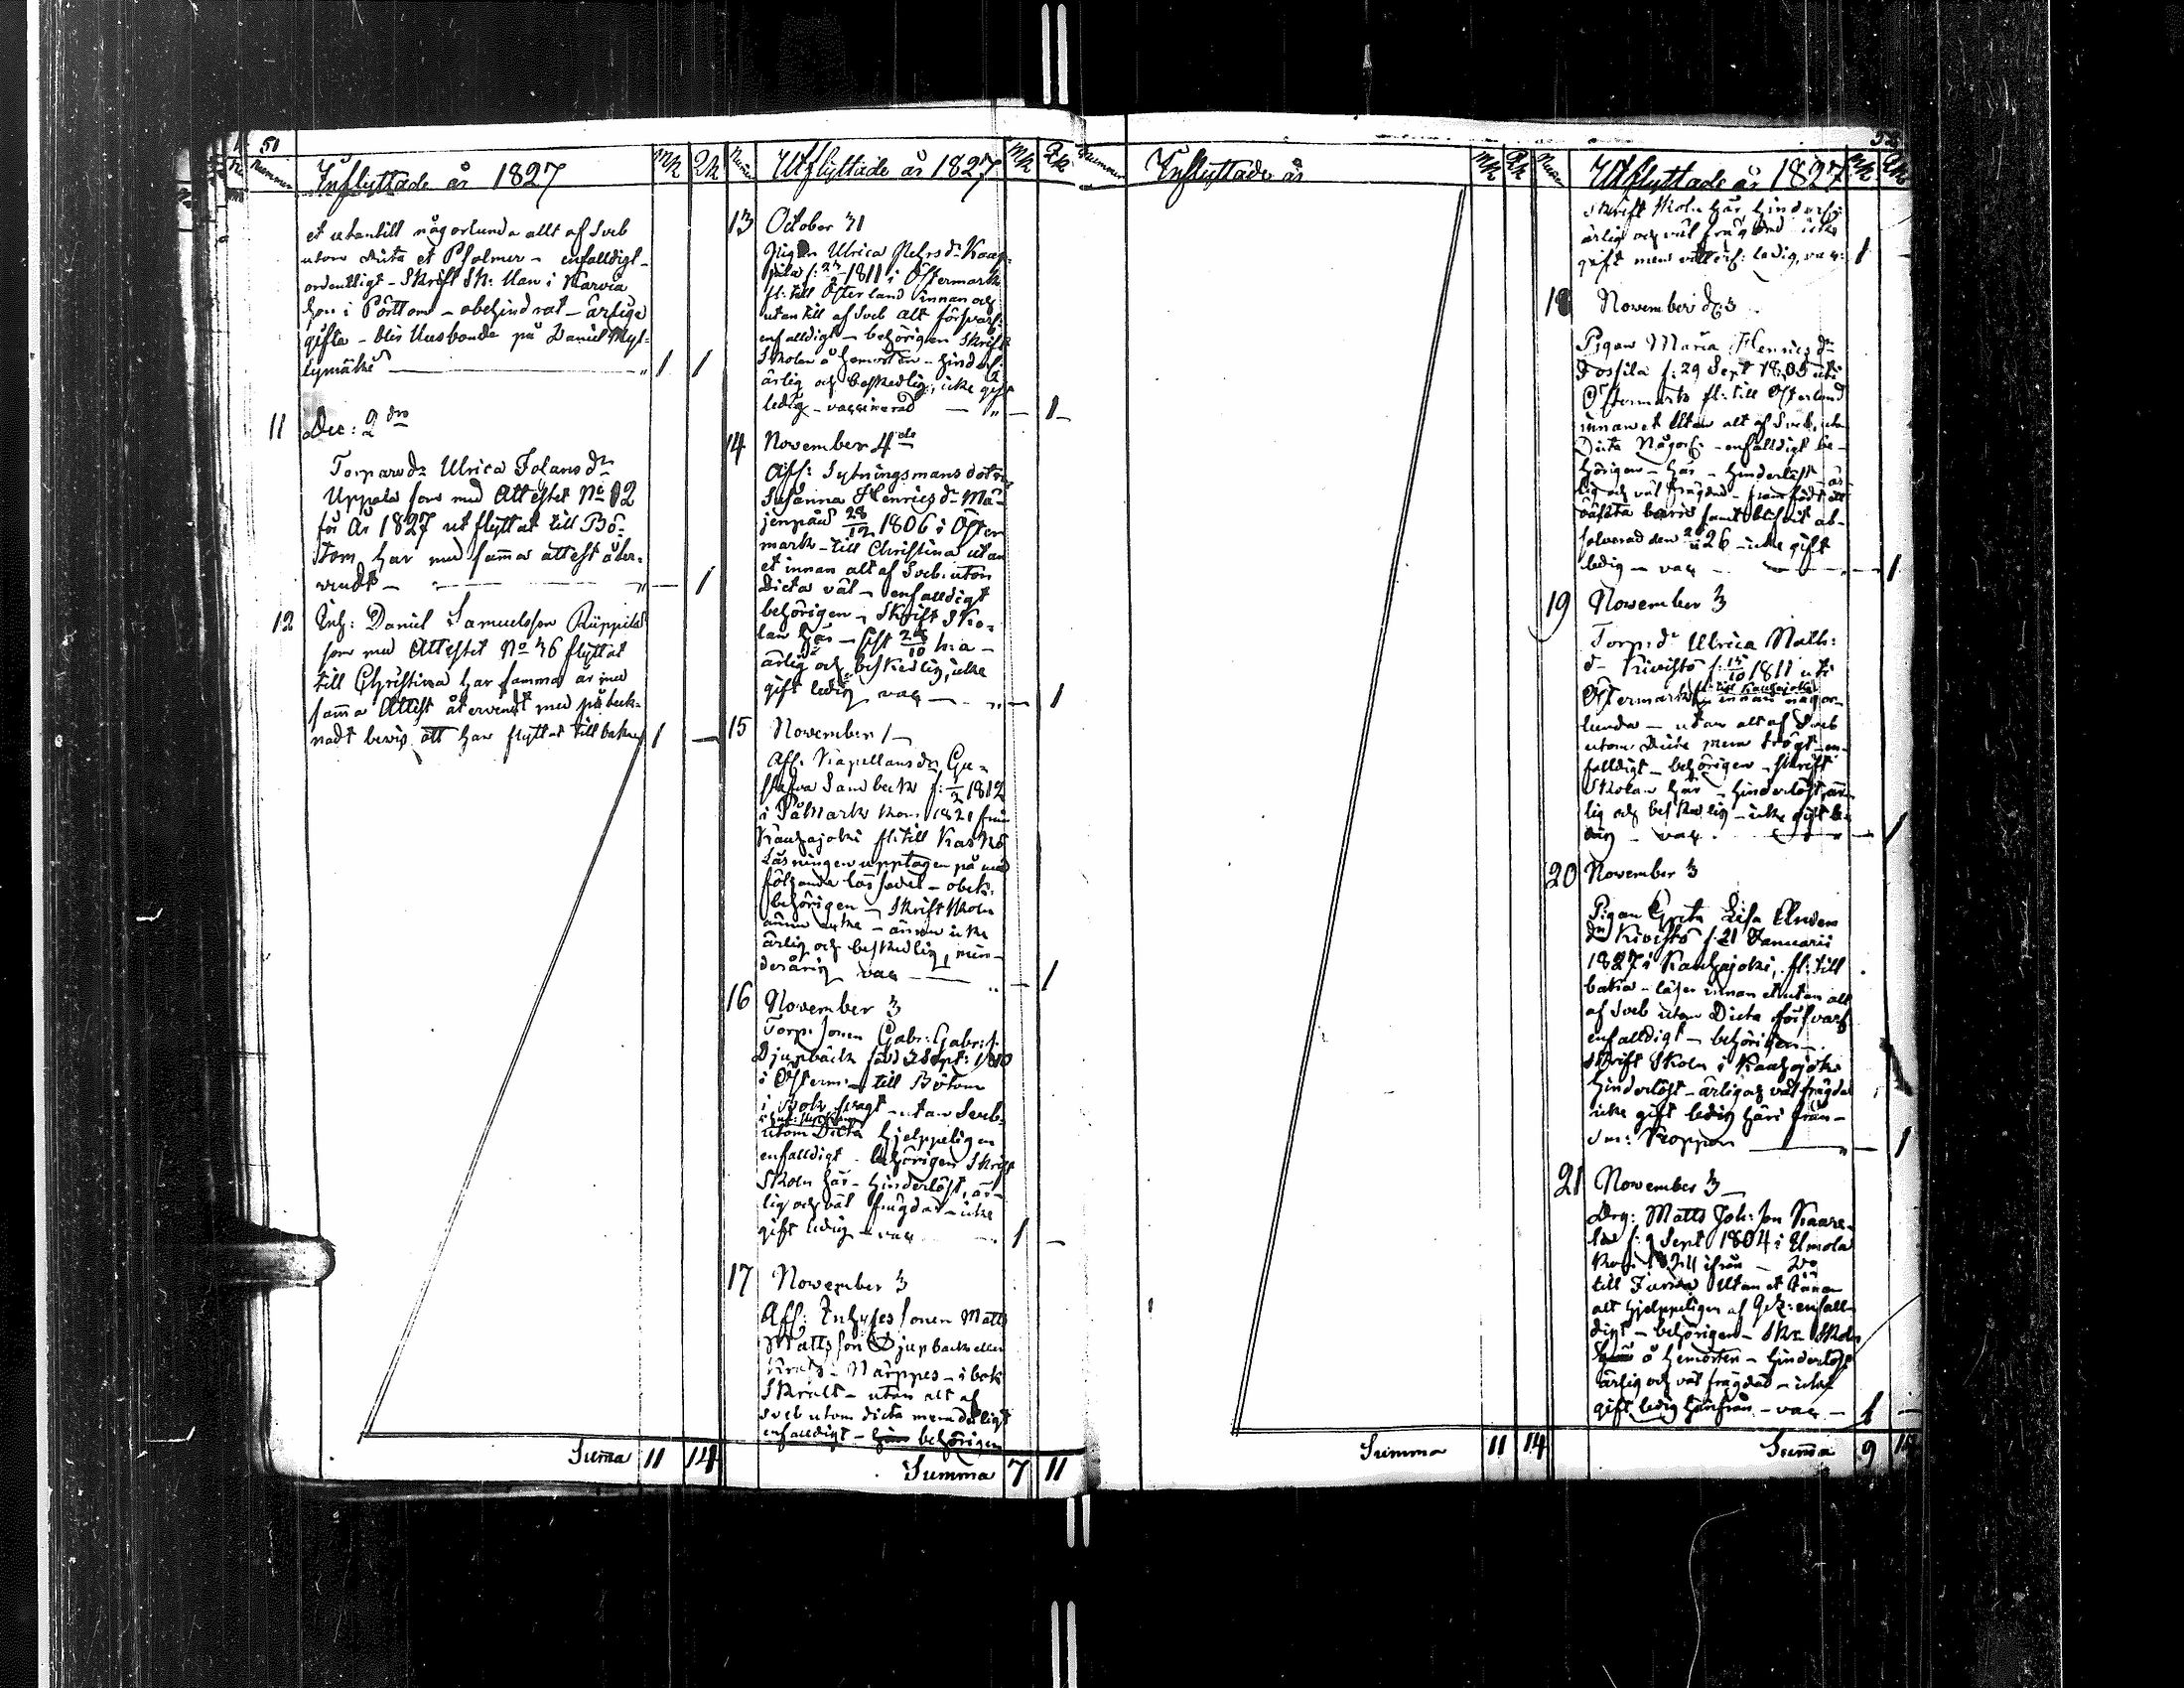 51
Nummer
Inflyttade år 1827
Mk
Qk
et utantill någorlunda allt af Sveb
utom Dicta et Psalmer - enfalldigt -
ordentligt - Skrift Sk: Han i Karvia
hon i Pörtom - obehindrat - ärlige
gifta - blir Husbonde på Daniel Myl-
lymäki " 1 1
11 Dec: 2dra
Torparedr Ulrica Johansdr
Uppala som med Attestet No 12
för År 1827 utflyttat till Bö-
tom har med samma attest åter-
vendt - " - 1
12 Inh: Daniel Samuelsson
som med Attestet No 36 flyttat
till Christina har samma år med
samma Attest återvendt med påteck-
nadt bevis att han flyttat tillbaka 1 -
Summa 11 14
Num
Utflyttade år 1827
Mk
Qk
13 October 31
Pigan Ulrica
1811 i Östermark
fl: till Österland innan och
utantill af Sveb alt försvarl:
enfalldigt - behörigen Skrift
Skolan å hemorten - hinderl:
ärlig och beskedlig, icke gift
ledig - vaccinerad - " - 1 -
14 November 4de
Afsk: Sytningsmansdotren
Susanna Henricsdr Mä-
jenpää 28/12 1806 i Öster
mark - till Christina utan
et innan alt af Sveb. utom
Dicta väl - enfalldigt
behörigen - Skrift Sko-
lan här - sist 28/10 h: a -
ärlig och beskedlig, icke
gift ledig vac - " - 1
15 November 1
Afl. Kapellansdr Gu-
stafva Sandbeck f: 1812
i Påmark kom 1821 från
Kauhajoki fl: till Kaskö
Läsningen upptagen på med
följande lässedel - obeh:
behörigen - Skriftskolan
ännu icke - ännu icke
ärlig och beskedlig, min-
derårig vac - " - 1
16 November 3
Torp. sonen Gabr: Gabr: s.
Djupbäck född 28 Sept: 1810
i Österm: - till Bötom
i bok svagt - utan Sveb.
utom Dicta hjelppeligen
enfalldigt - behörigen Skrift
Skolan här - hinderlöst, är-
lig och väl frägdad - icke
gift ledig - vac 1 -
17 November 3
Afsk: Inhyses sonen Matts
Mattsson Djupback eller
i Närppes - i bok
Skralt - utan alt af
Sveb utom dicta men dåligt
enfalldigt - behörigen
Summa 7 11
Nummer
Inflyttade år
Mk
Qk
Summa 11 14
Num
Utflyttade år 1827
Mk
Qk
Skrift Skolan här, hinderl:
ärlig och väl frägdad icke
gift men ledig, vac: 1
18 November d: 3
Pigan Maria Henricsdr
Fossila f: 29 Sept 1805 uti
Östermark fl: till Österland
innan et Utan alt af Sveb, utom
Dicta Någorl: - enfalldigt be-
hörigen - här - hinderlöst - är-
lig och väl frägdad - framfödt ett
oäkta barn samt blifvit ab-
solverad den 26 - icke gift
ledig - vac - 1
19 November 3
Torp: dr Ulrica Matts:
dr Kivistö f: 15/10 1811 uti
Östermark fl: till Kauhajoki innan någor-
lunda - utan alt af Sveb
utom Dicta men trögt - en-
falldigt - behörigen - Skrift
Skolan här - hinderlöst, är-
lig och beskedlig - icke gift le-
dig - vac - 1
20 November 3
Pigan Greta Lisa
dr Kivistö f: 21 Januarii
1827 i Kauhajoki, fl: till
baka - läser innan et utan alt
af Sveb utom Dicta försvarl:
enfalldigt - behörigen -
Skrift Skolan i Kauhajoki
hinderlöst - ärlig och väl frägdad
icke gift ledig härifrån -
sm: Koppor " - 1
21 November 3
Drg: Matts Joh: son Kaare-
f: 9 Sept 1804 i Ilmola
till Utan et Innan
alt hjelppeligen af Gez: enfall-
digt - behörigen - Skr: Skolan
å hemorten - hinderlöst
ärlig och väl frägdad - icke
gift ledig härifrån - vac - 1 -
Summa 9